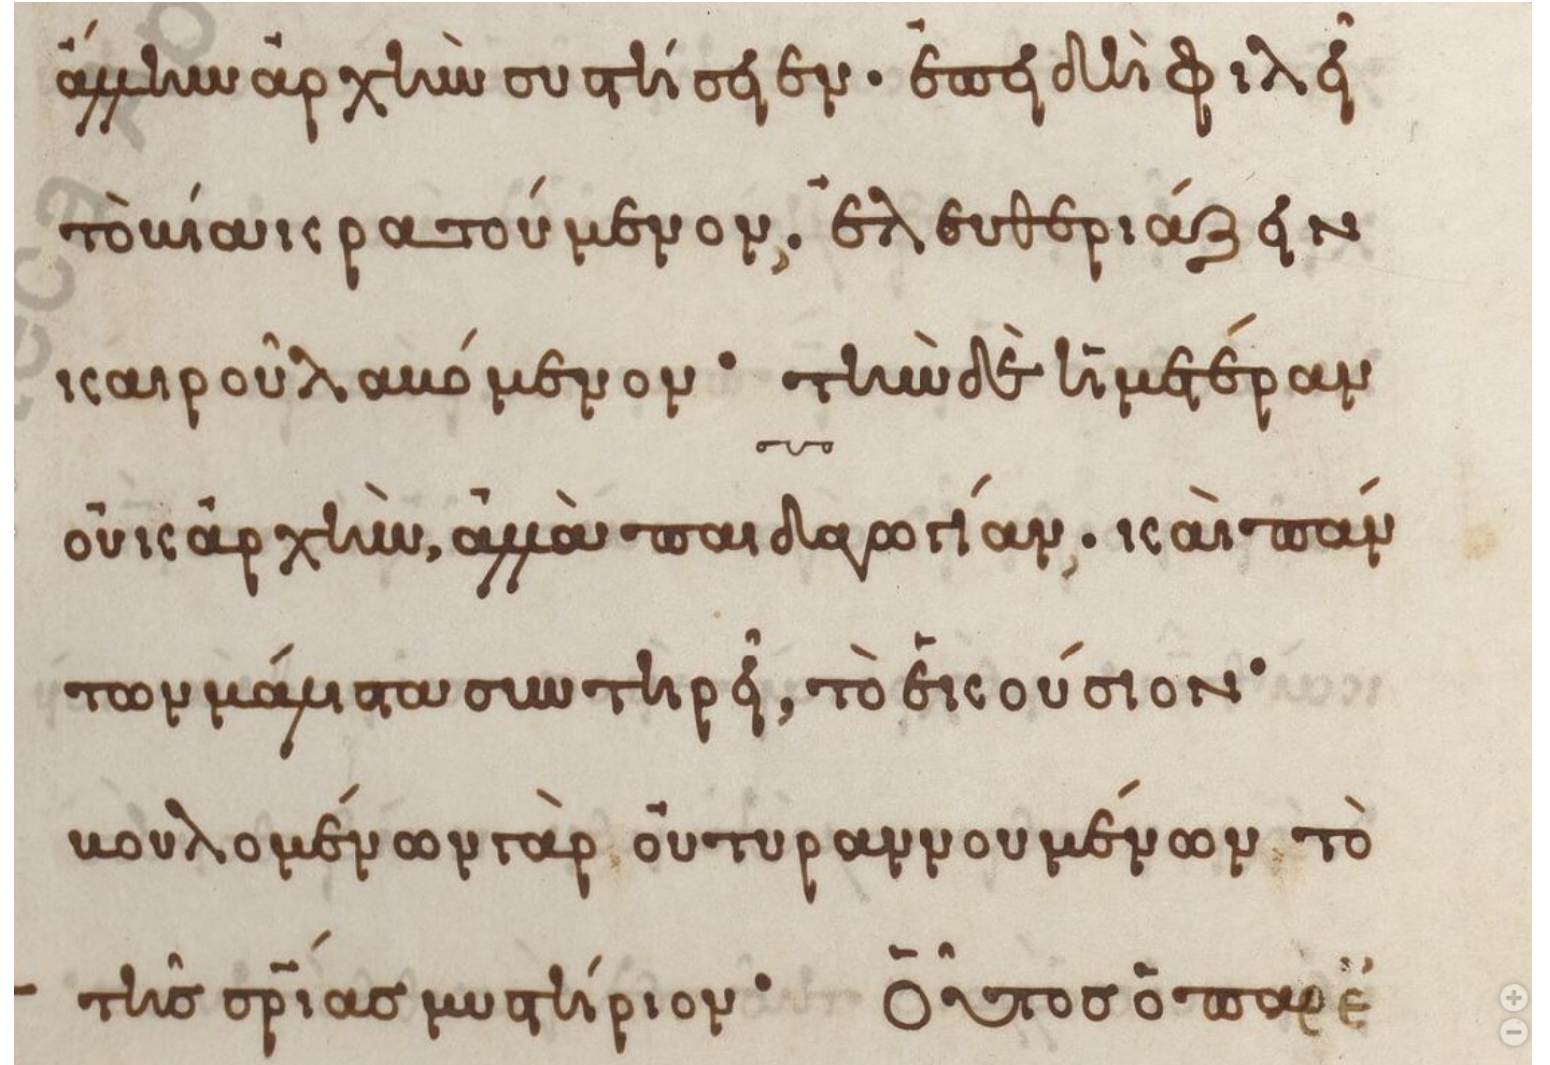 ἄλλην ἀρχὴν συστήσειεν· ἐπειδὴ φιλεῖ
τὸ βίαι κρατούμενον, ἐλευθεριάζειν
καιροῦ λαβόμενον· τὴν δὲ ἡμετέραν
οὐκ ἀρχὴν, ἀλλὰ παιδαγωγίαν· καὶ πάν
των μάλιστα συντηρεῖ, τὸ ἑκούσιον·
βουλομένων γὰρ οὐ τυραννουμένων τὸ
τῆς σρίας μυστήριον· Οὗτος ὁ παρέ